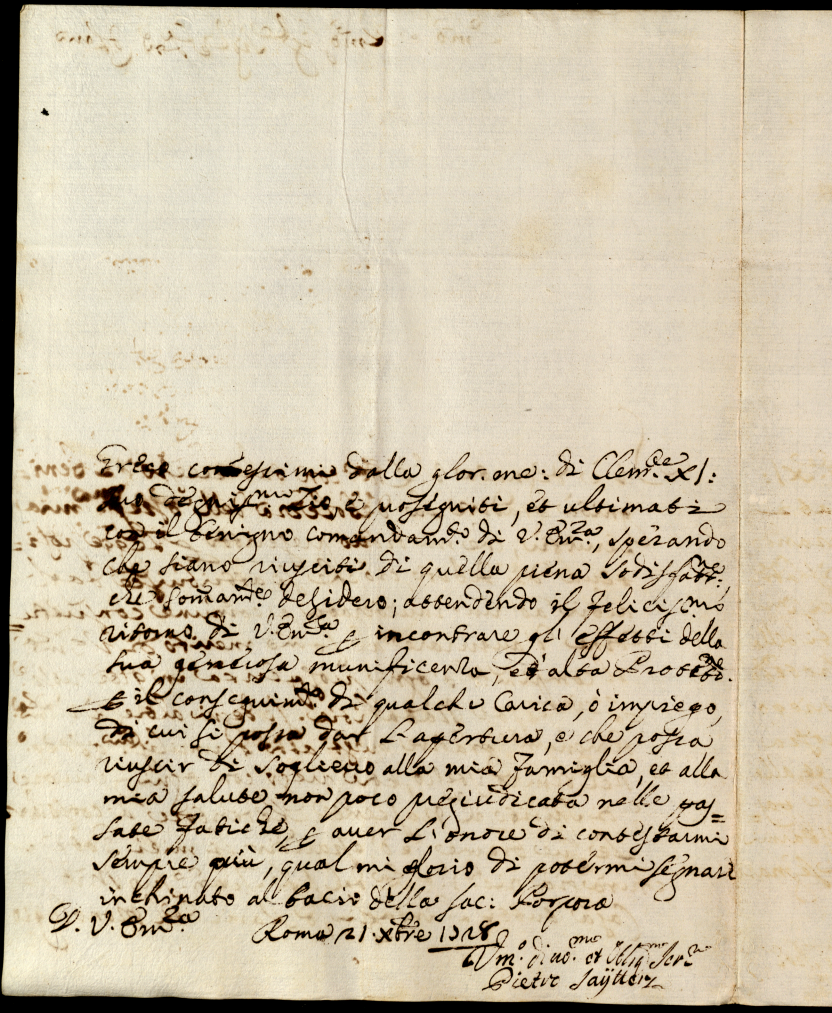 comessimi dalla glor: me: di Clem.te XI:
Zio, e proseguiti, et ultimati
con il benigno comandam.to di V. Em.za, sperando
che siano riusciti di quella piena sodisfatt.ne,
che somam.te desidero; attendendo il felicis.mo
ritorno di V. Em.za p incontrare gl'effetti della
sua generosa munificenza, et alta Protett.
p il conseguim.to di qualche Carica, ò impiego,
di cui si possa dar L'apertura, e che possa
riuscir di Soglievo alla mia famiglia, et alla
mia salute non poco pregiudicata nelle pas=
sate fatiche, p aver L'onore di contestarmi
sempre più, qual mi glorio di potermi segnare
inchinato al bacio della Sac: Porpora
D. V. Em.za Roma 21 Xbre 1728
Um.o div.mo et Oblig.mo Ser.re
Pietro